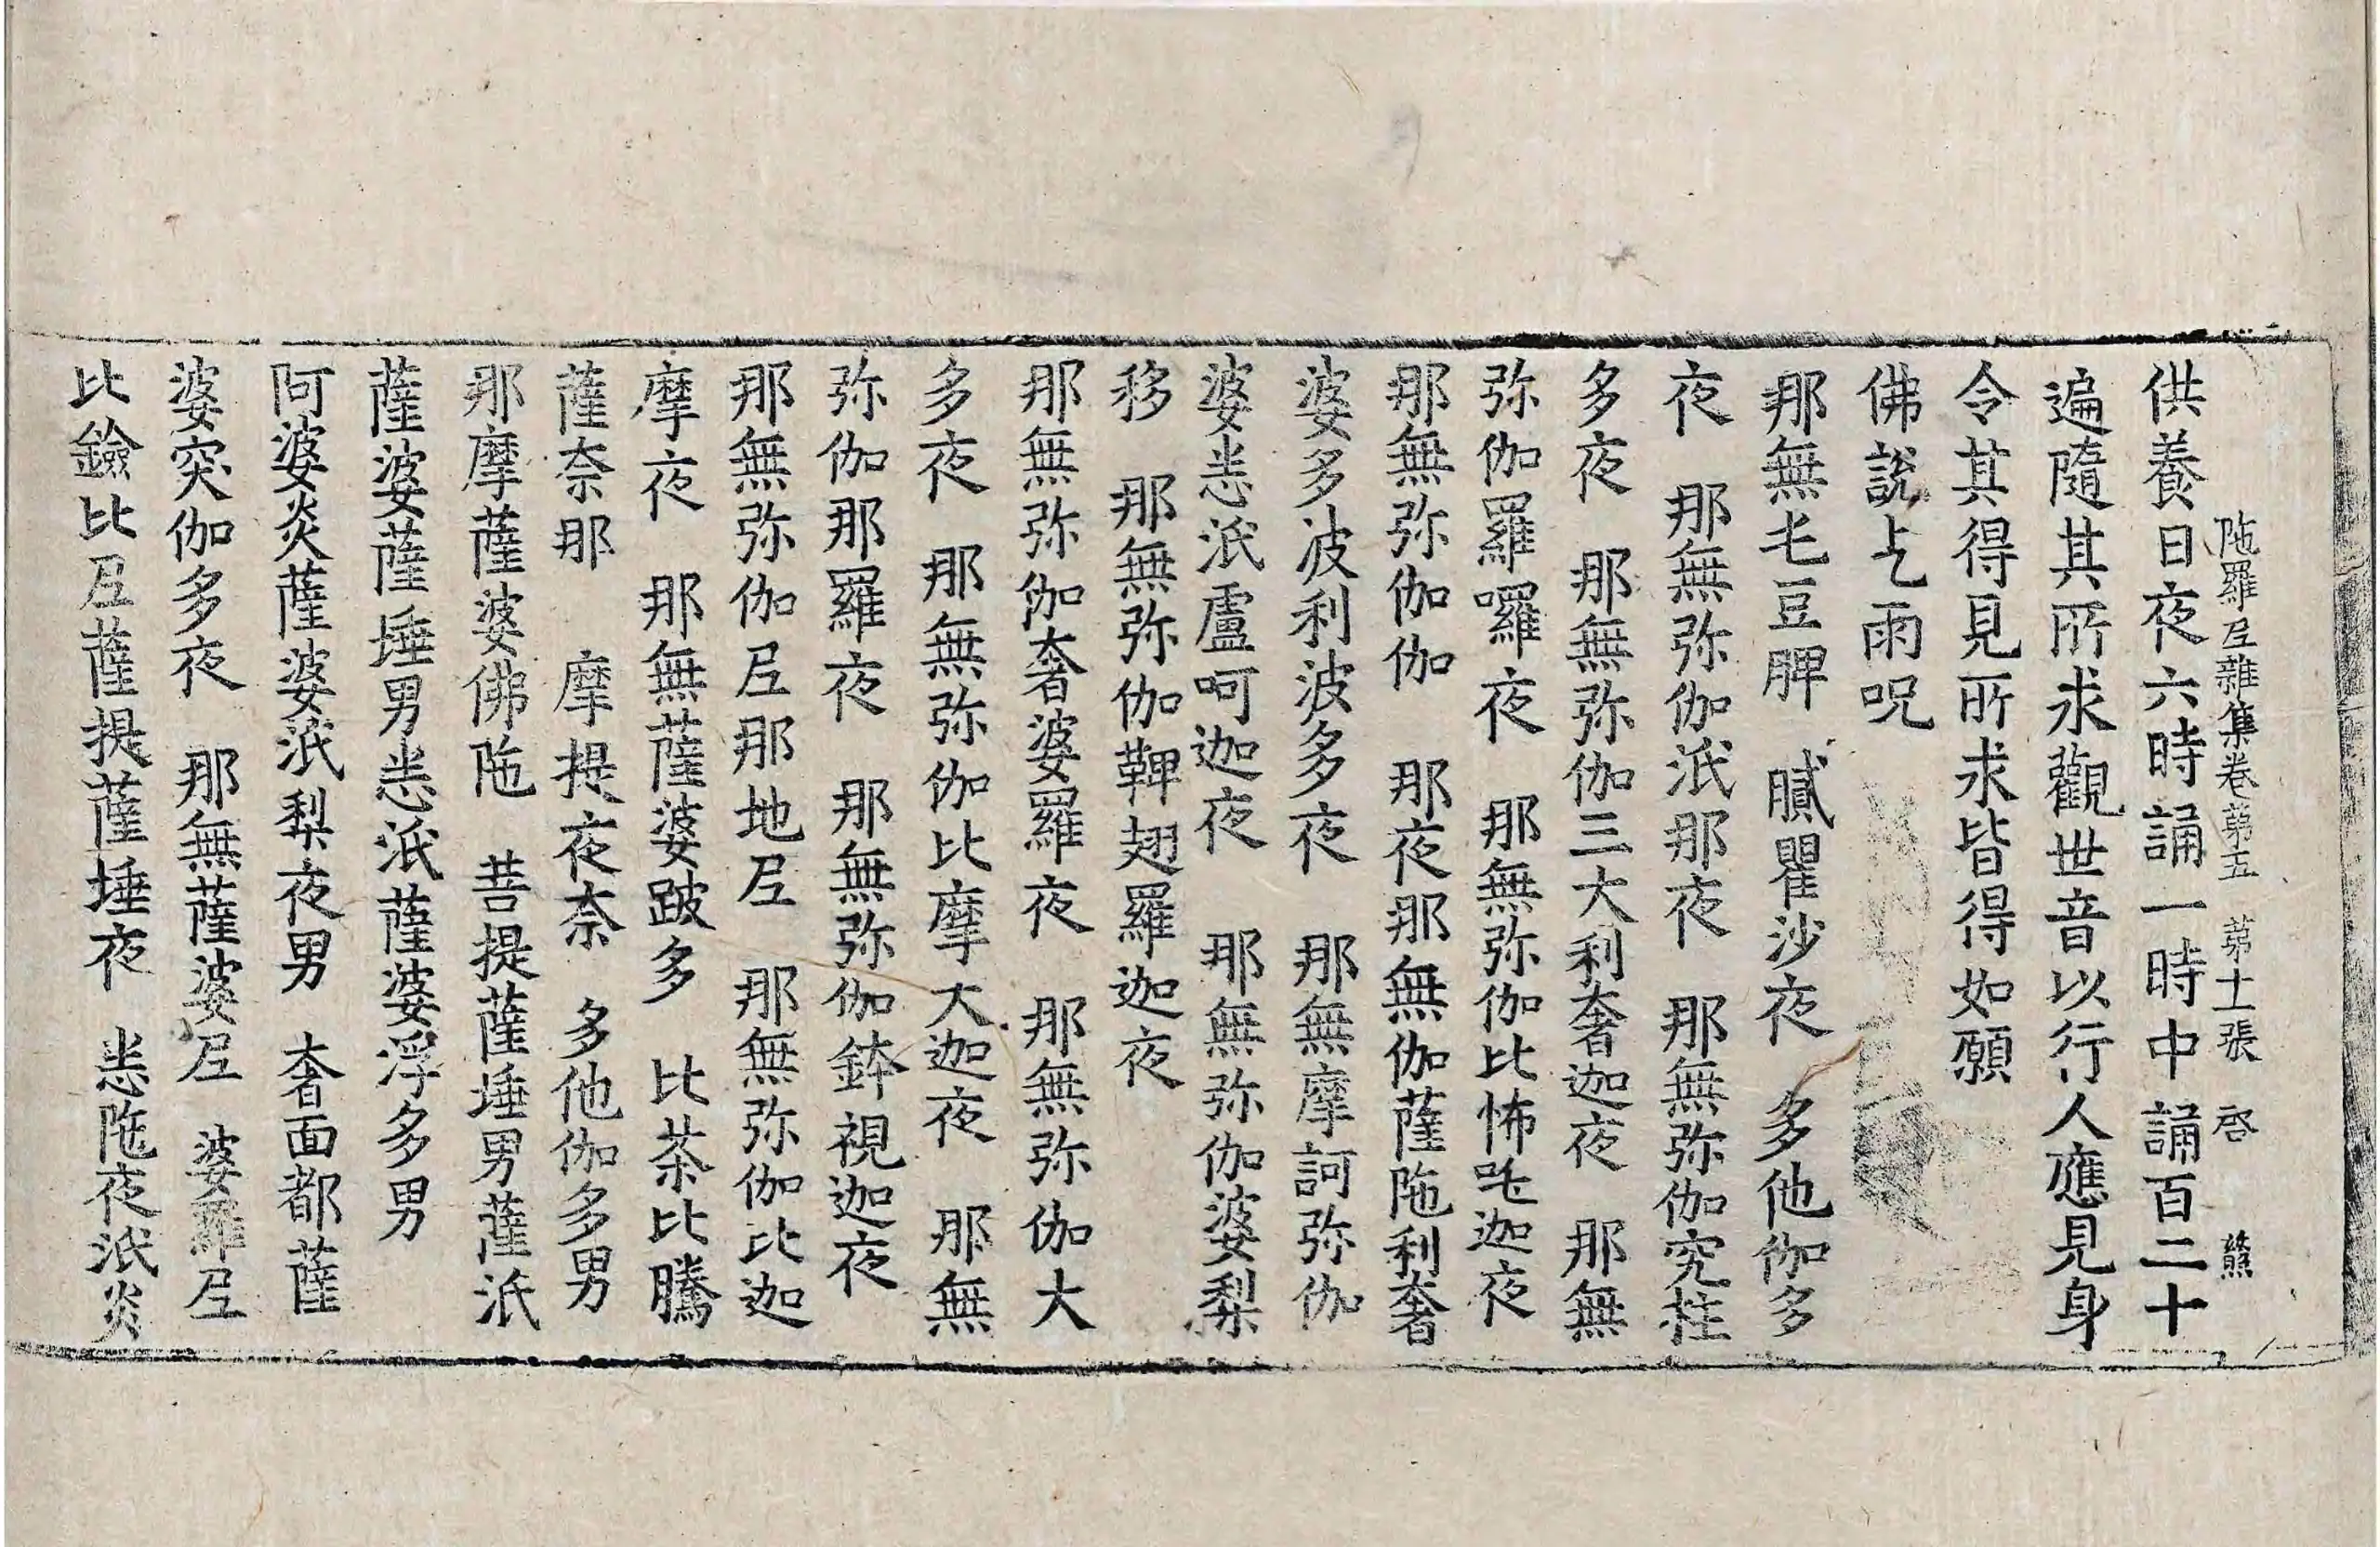 陁羅𡰱雜集卷第五　第十一張　啓　熊
供養日夜六時誦一時中誦百二十
遍隨其所求觀世音以行人應見身
令其得見所求皆得如願
佛說乞雨呪
那無乇豆脾　膩瞿沙夜　多他伽多
夜　那無弥伽泜那夜　那無弥伽究拄
多夜　那無弥伽三大利奢迦夜　那無
弥伽羅囉夜　那無弥伽比怖吒迦夜
那無弥伽伽　那夜那無伽薩陁利奢
婆多波利波多夜　那無摩訶弥伽
婆恙泜盧呵迦夜　那無弥伽婆梨
移　那無弥伽鞞翅羅迦夜
那無弥伽奢婆羅夜　那無弥伽大
多夜　那無弥伽比摩大迦夜　那無
弥伽那羅夜　那無弥伽鉢視迦夜
那無弥伽𡰱那地𡰱　那無弥伽比迦
摩夜　那無薩婆跛多　比茶比騰
薩奈那　摩提夜奈　多他伽多男
那摩薩婆佛陁　菩提薩埵男薩泜
薩婆薩埵男恙泜薩婆浮多男
阿婆炎薩婆泜梨夜男　奢面都薩
婆突伽多夜　那無薩婆𡰱　婆羅𡰱
比鐱比𡰱薩提薩埵夜　恙陁夜泜炎